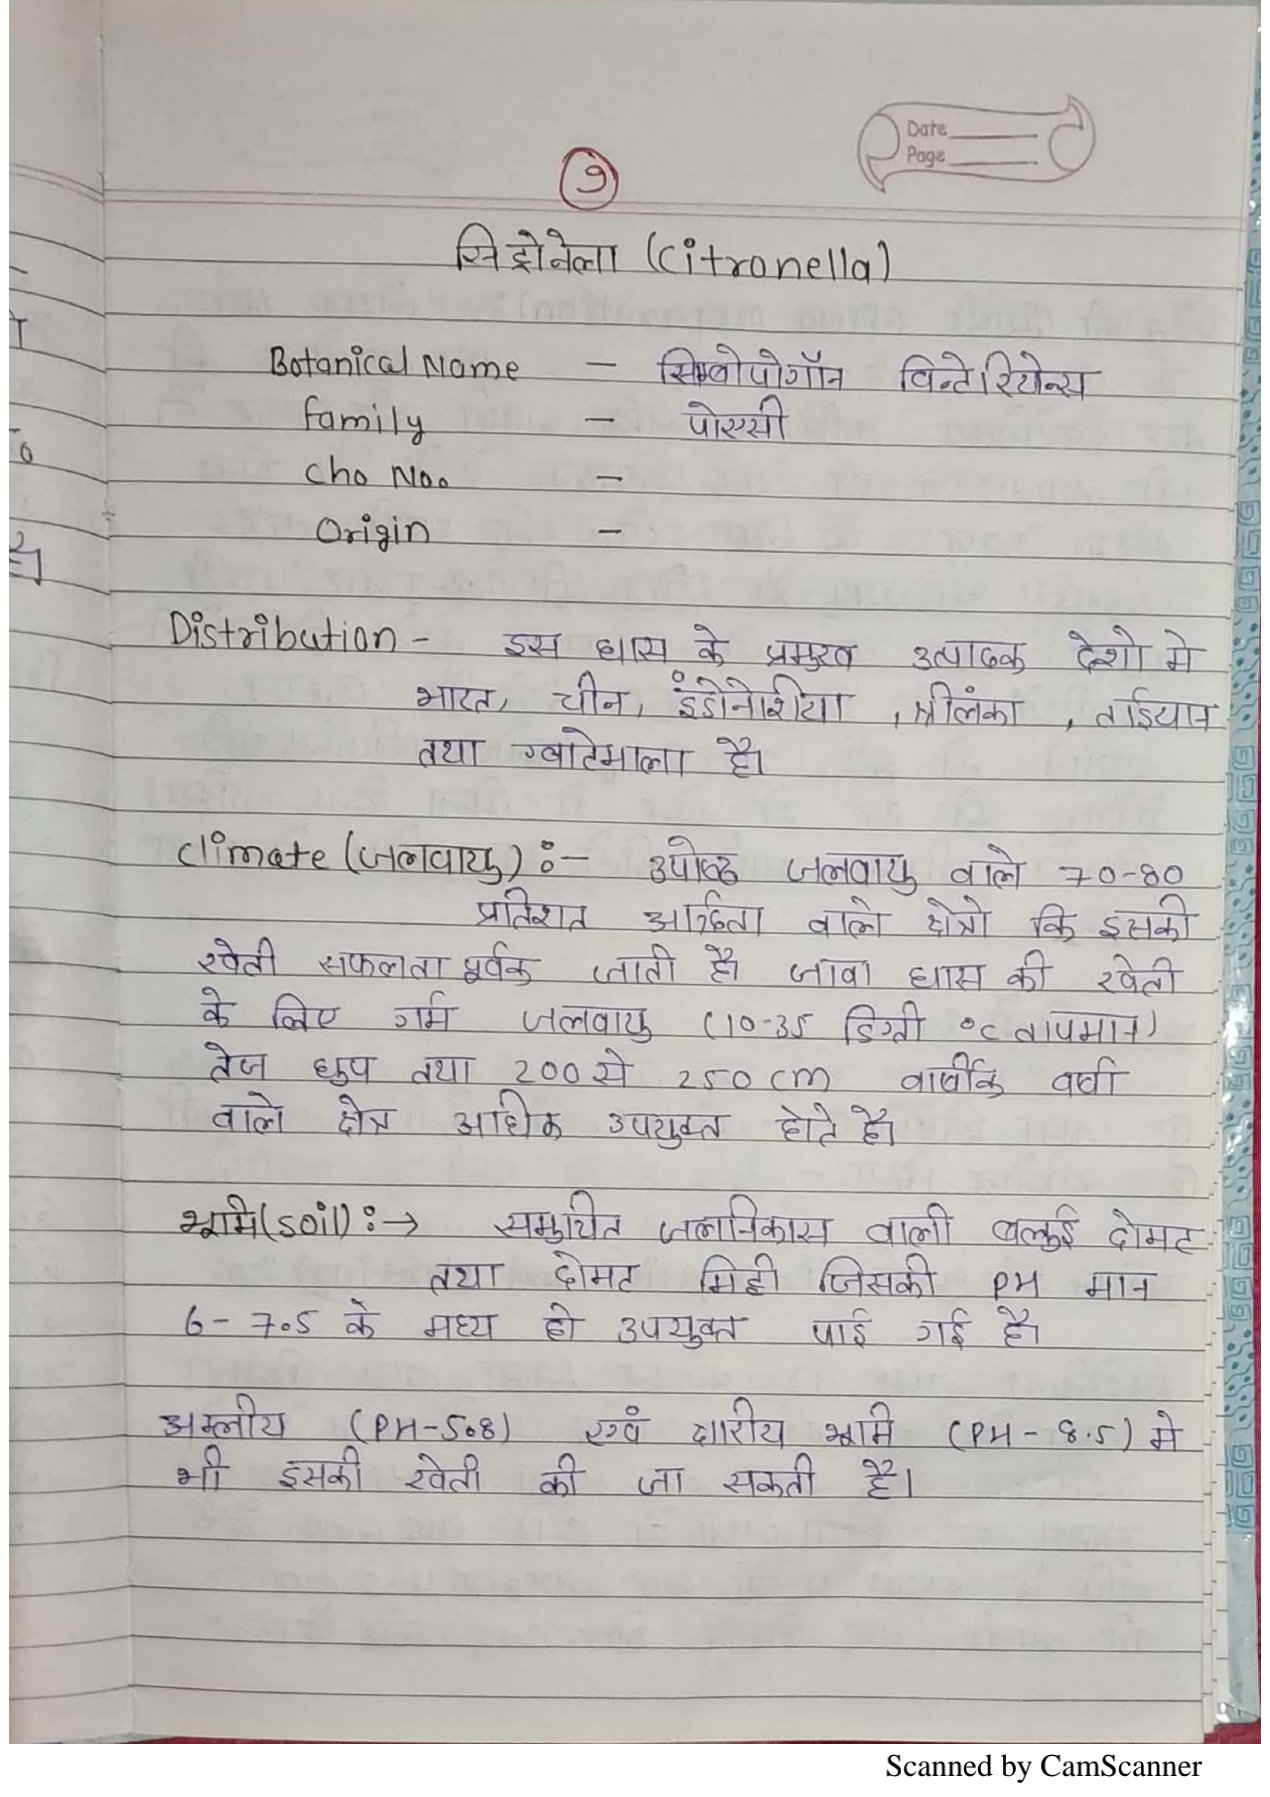 Date
Page
9
सिट्रोनेला (Citronella)
Botanical Name - सिम्बोपोगॉन विन्टेरियेन्स
family - पोएसी
Cho No. -
Origin -
Distribution - इस घास के प्रमुख उत्पादक देशो मे
भारत, चीन, इंडोनेशिया, श्रीलंका, ताईवान
तथा ग्वाटेमाला है।
Climate (जलवायु) :- उपोष्ण जलवायु वाले 70-80
प्रतिशत आर्द्रता वाले क्षेत्रो कि इसकी
खेती सफलता पूर्वक जाती है। जावा घास की खेती
के लिए गर्म जलवायु (10-35 डिग्री °C तापमान)
तेज धुप तथा 200 से 250 cm वार्षीक वर्षा
वाले क्षेत्र अधिक उपयुक्त होते है।
भूमि (soil) :→ समुचित जलनिकास वाली बलुई दोमट
तथा दोमट मिट्टी जिसकी PH मान
6-7.5 के मध्य हो उपयुक्त पाई गई है।
अम्लीय (PH-5.8) एवं क्षारीय भूमि (PH - 8.5) मे
भी इसकी खेती की जा सकती है।
Scanned by CamScanner